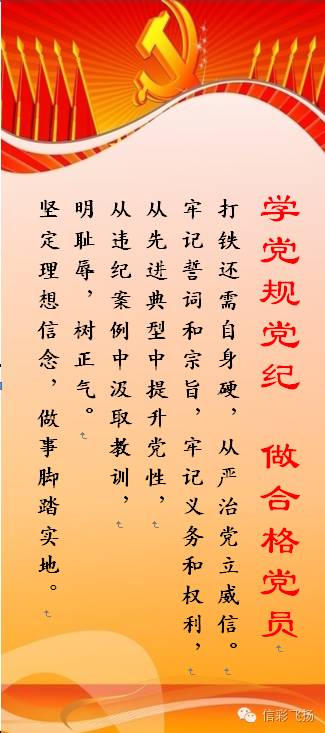 学党规党纪 做合格党员
打铁还需自身硬，从严治党立威信。
牢记誓词和宗旨，牢记义务和权利，
从先进典型中提升党性，
从违纪案例中汲取教训，
明耻辱，树正气。
坚定理想信念，做事脚踏实地。
信彩飞扬